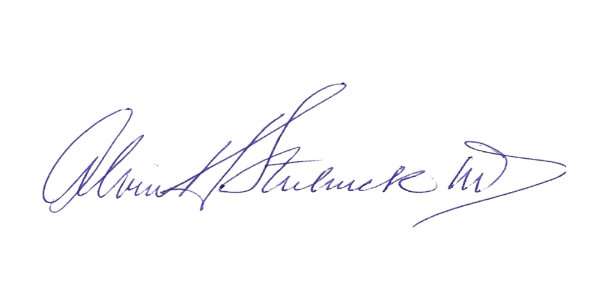 Alvin H Strelnick MD